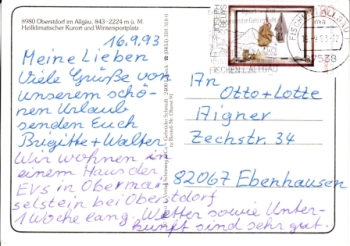 8980 Oberstdorf im Allgäu, 843-2224 m ü. M.
Heilklimatischer Kurort und Wintersportplatz
16.9.93
Meine Lieben
Viele Grüße von
unserem schö-
nen Urlaub
senden Euch
Brigitte + Walter
Wir wohnen in
einem Haus der
EVS in Obermai
selstein bei Oberstdorf
1 Woche lang. Wetter sowie Unter-
kunft sind sehr gut.
An
Otto + Lotte
Aigner
Zechstr. 34
82067 Ebenhausen